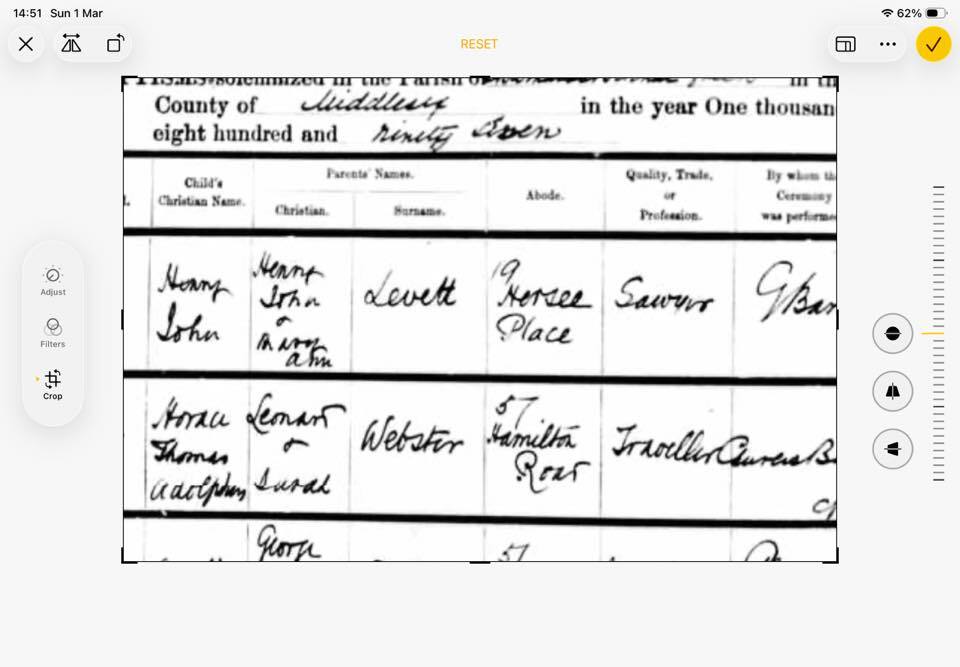 14:51 Sun 1 Mar 62%
RESET
solemnized in the Parish of
County of Middlesex in the year One thousan
eight hundred and ninety seven
Child's Christian Name.
Parents' Names.
Christian.
Surname.
Abode.
Quality, Trade, or Profession.
By whom th
Ceremony
was performe
Henry John
Henry John & Mary Ann
Levett
19 Hersee Place
Sawyer
G Bar
Horace Thomas Adolphus
Leonard & Sarah
Webster
57 Hamilton Road
Traveller
George
57
Adjust
Filters
Crop